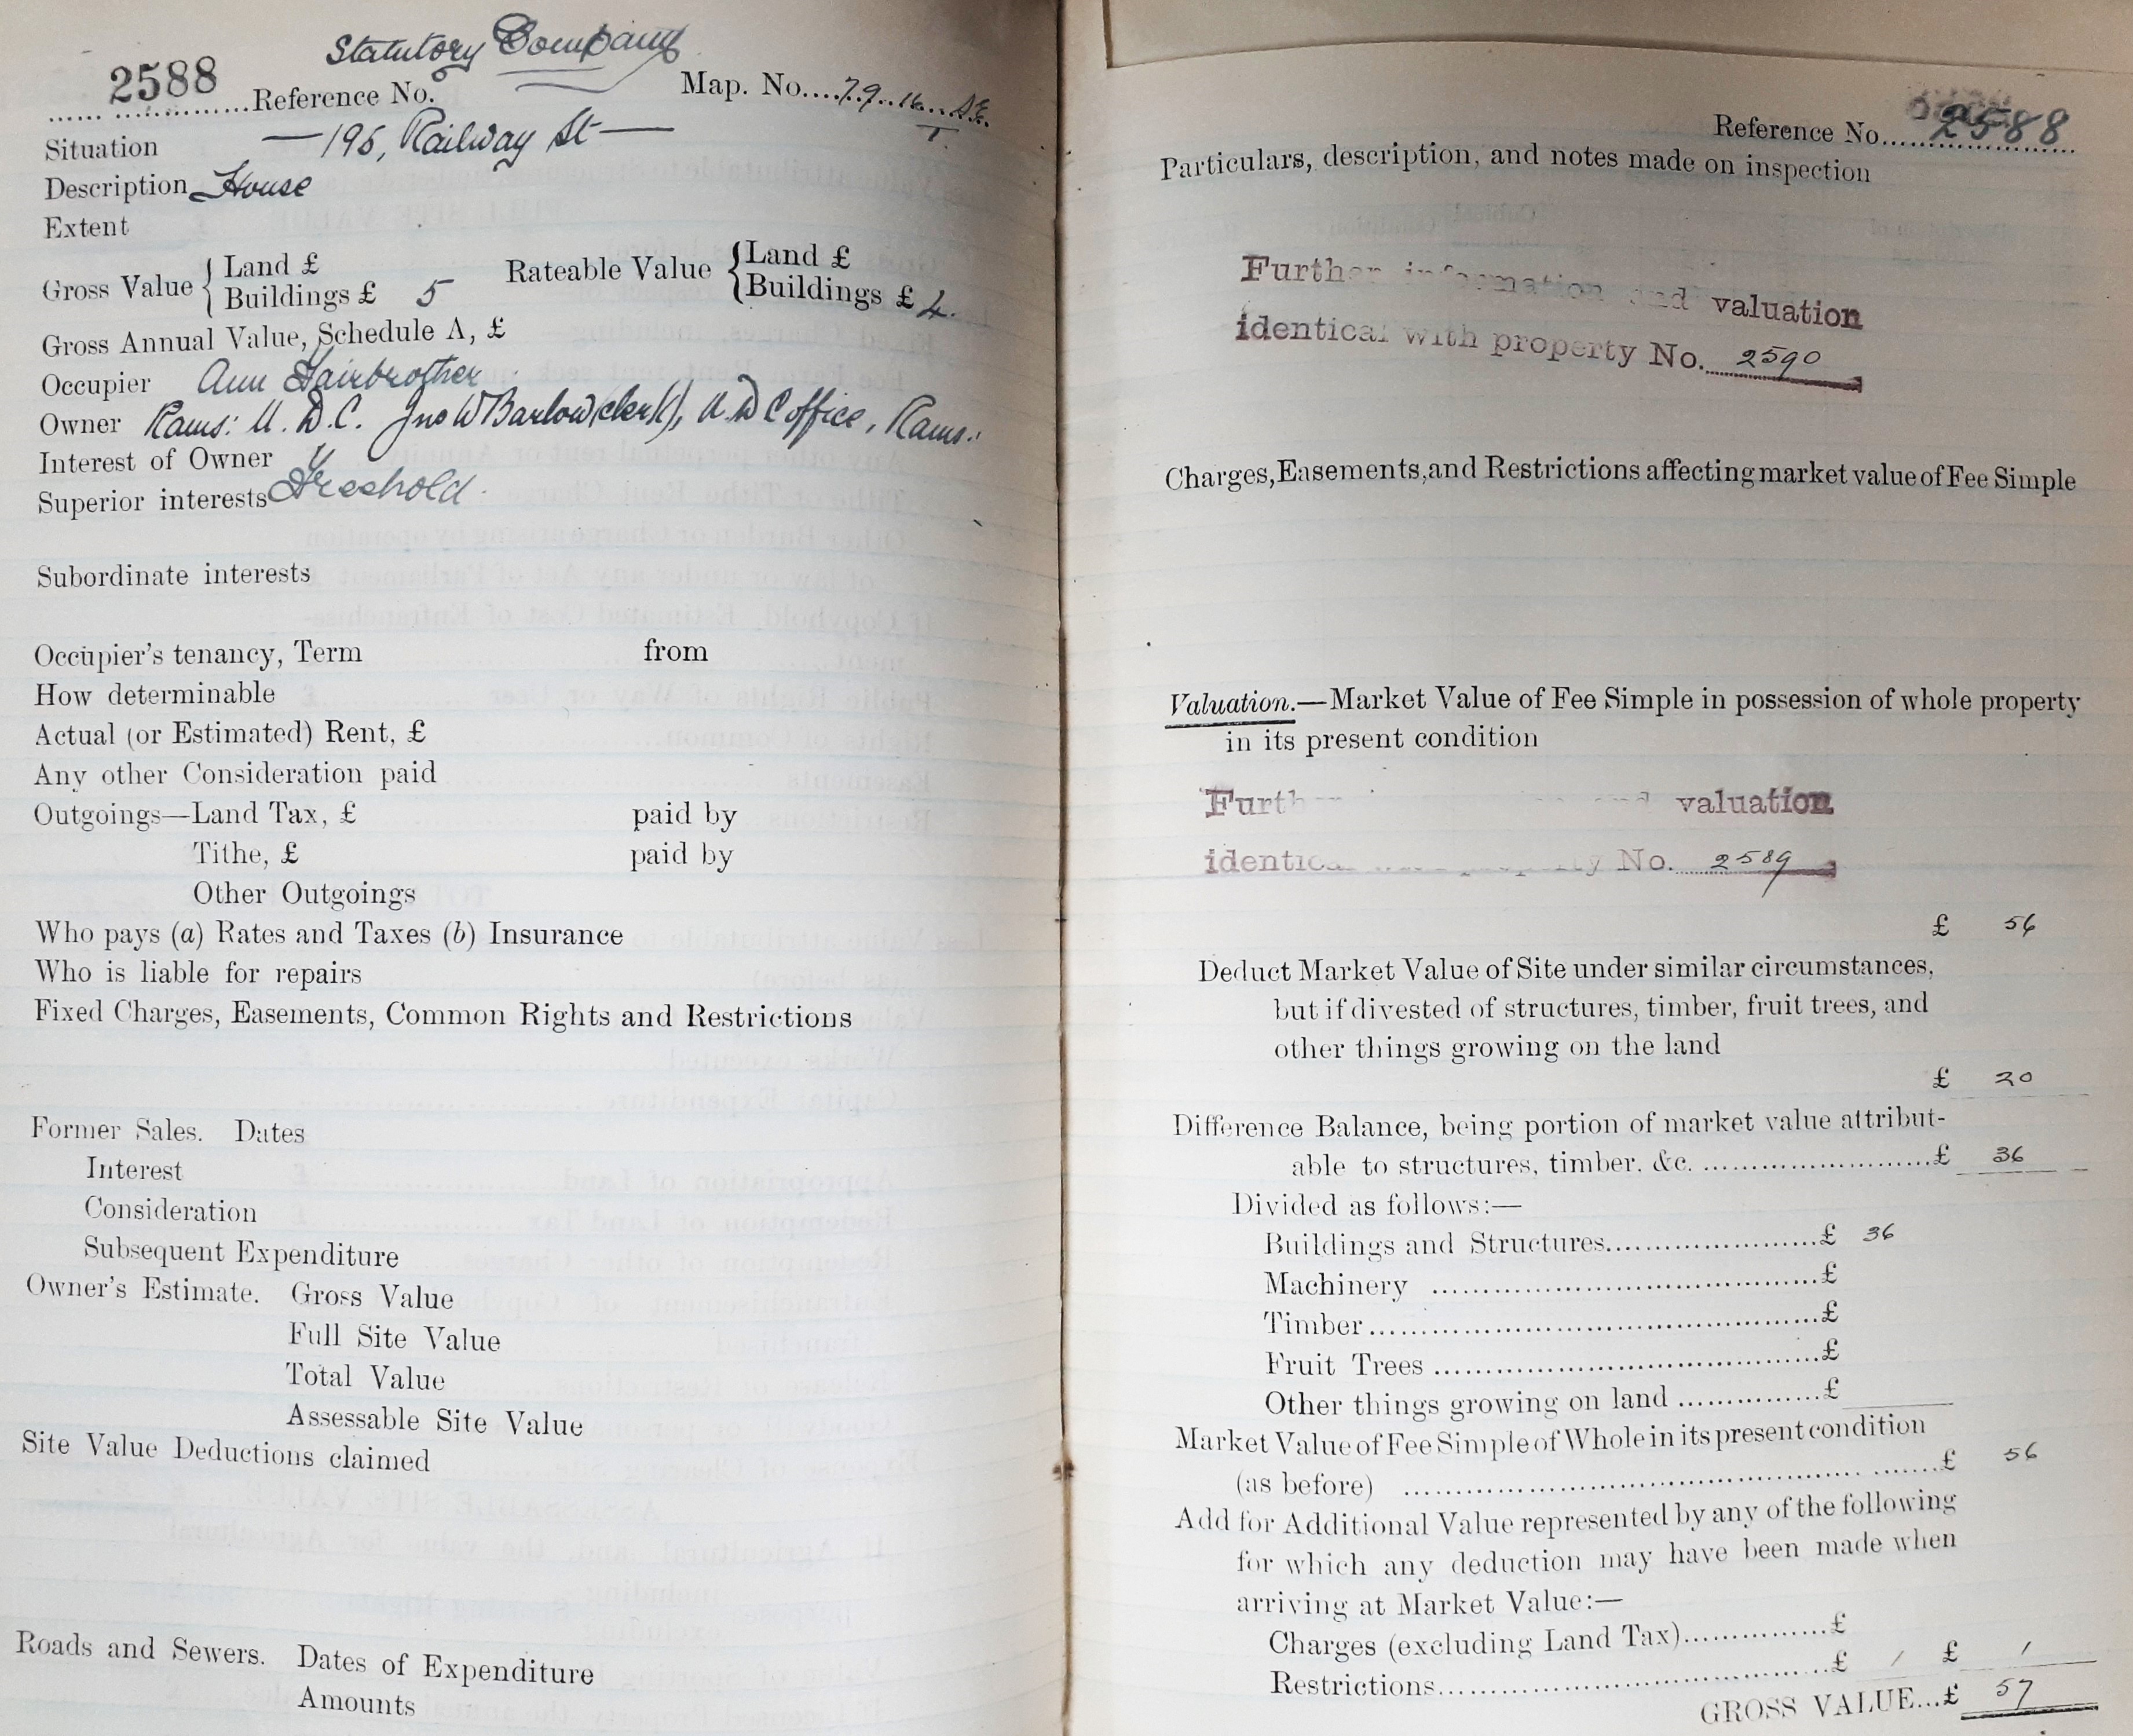 Statutory Company
2588 Reference No. Map. No. 79.16. S.E.
T.
Situation —195, Railway St—
Description House
Extent
Gross Value { Land £
Buildings £ 5
Rateable Value { Land £
Buildings £ 4.
Gross Annual Value, Schedule A, £
Occupier Ann Fairbrother
Owner Rams: U. D. C. Jno W Barlow (clerk), U D C office, Rams:
Interest of Owner
Superior interests Freehold.
Subordinate interests
Occupier's tenancy, Term from
How determinable
Actual (or Estimated) Rent, £
Any other Consideration paid
Outgoings—Land Tax, £ paid by
Tithe, £ paid by
Other Outgoings
Who pays (a) Rates and Taxes (b) Insurance
Who is liable for repairs
Fixed Charges, Easements, Common Rights and Restrictions
Former Sales. Dates
Interest
Consideration
Subsequent Expenditure
Owner's Estimate. Gross Value
Full Site Value
Total Value
Assessable Site Value
Site Value Deductions claimed
Roads and Sewers. Dates of Expenditure
Amounts
Reference No. 2588
Particulars, description, and notes made on inspection
Further information and valuation
identical with property No. 2590
Charges, Easements, and Restrictions affecting market value of Fee Simple
Valuation.—Market Value of Fee Simple in possession of whole property
in its present condition
Further and valuation
identical property No. 2589
£ 56
Deduct Market Value of Site under similar circumstances,
but if divested of structures, timber, fruit trees, and
other things growing on the land
£ 20
Difference Balance, being portion of market value attribut-
able to structures, timber. &c. £ 36
Divided as follows:—
Buildings and Structures £ 36
Machinery £
Timber £
Fruit Trees £
Other things growing on land £
Market Value of Fee Simple of Whole in its present condition
(as before) £ 56
Add for Additional Value represented by any of the following
for which any deduction may have been made when
arriving at Market Value:—
Charges (excluding Land Tax) £
Restrictions £ 1 £ 1
GROSS VALUE...£ 57